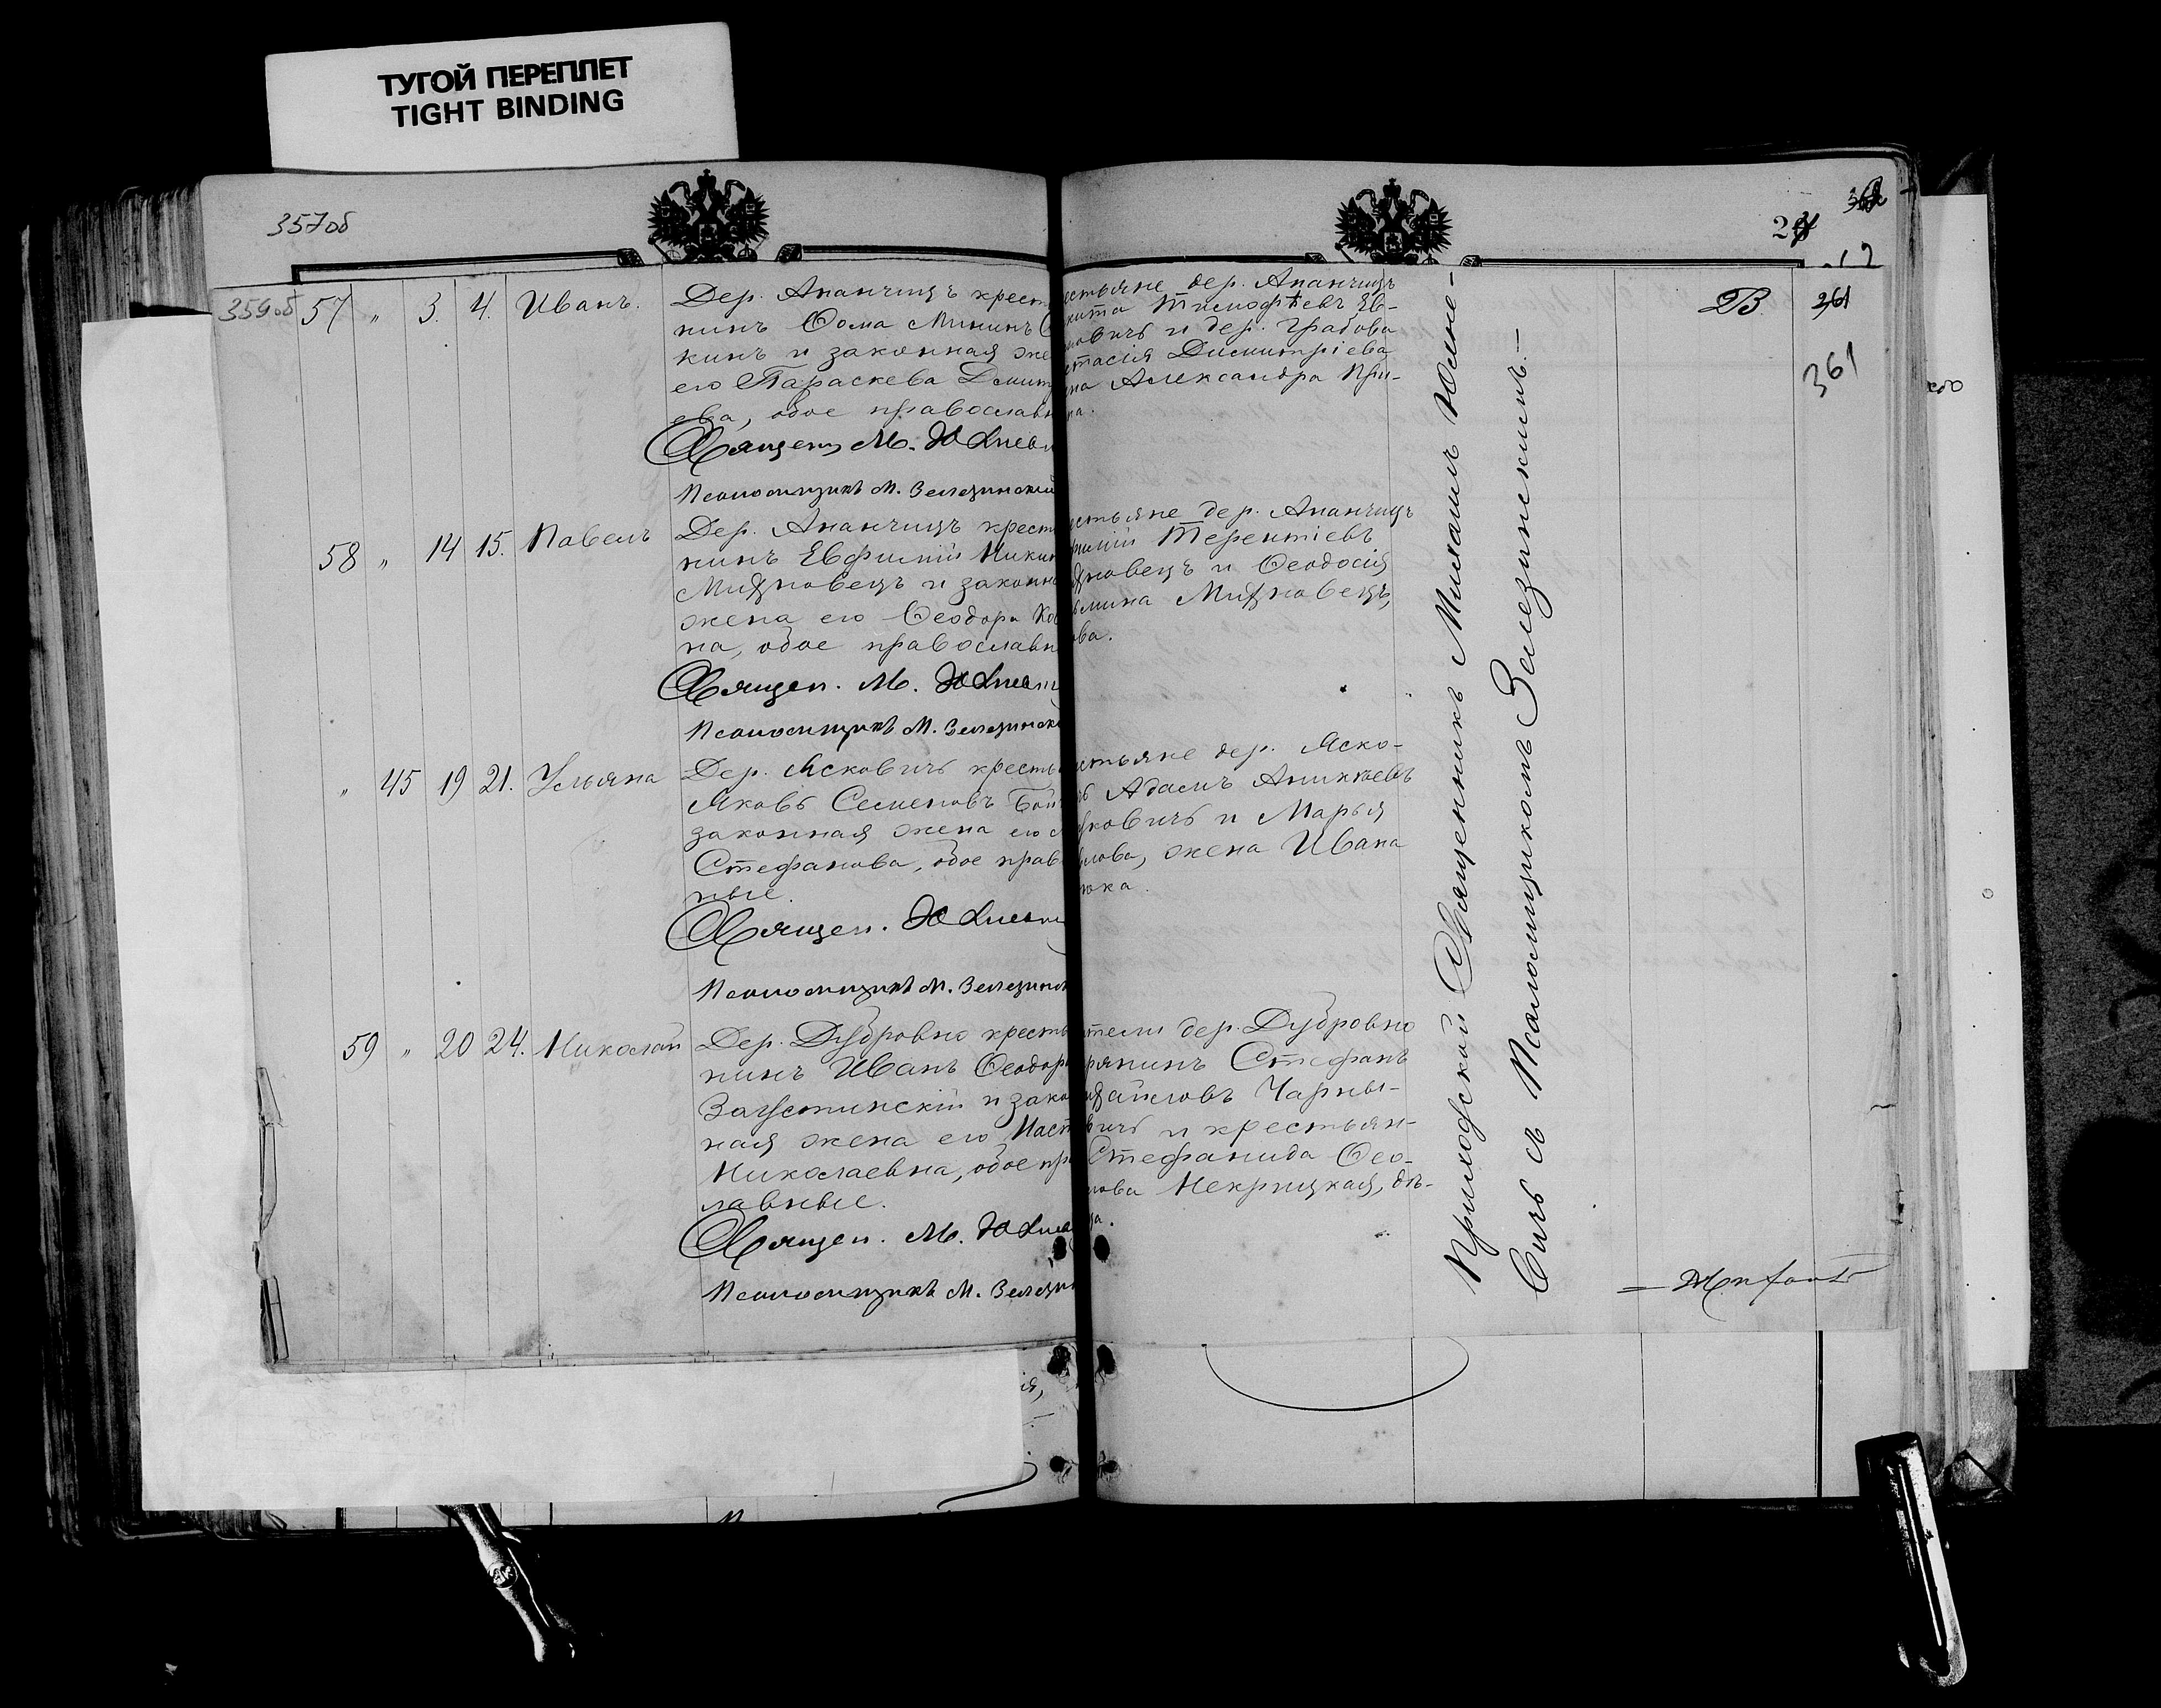 ТУГОЙ ПЕРЕПЛЕТ
TIGHT BINDING
357об
359об
57 " 3. 4. Иванъ.
Дер. Ананчицъ крест
нинъ Ѳома Мининъ
кинъ и законная же
его Параскева Дмит
ева, обое православн
Священ. М. Юхнев
Псаломщикъ М. Зелезинскій
58 " 14 15. Павелъ
Дер. Ананчицъ крест
нинъ Евфимій Никит
Михновецъ и законн
жена его Ѳеодора Ко
на, обое православн
Священ. М. Юхневи
Псаломщикъ М. Зелезинск
" 45 19 21. Ульяна
Дер. Ясковичъ кресть
Яковъ Семеновъ Бой
законная жена его
Стефанова, обое прав
ные.
Священ. Юхневи
Псаломщикъ М. Зелезинс
59 " 20 24. Николай
Дер. Дубровно кресть
нинъ Иванъ Ѳеодор
Загустинскій и зако
ная жена его Наст
Николаевна, обое пр
лавные.
Священ. М. Юхнев
Псаломщикъ М. Зелезин
естьяне дер. Ананчицъ
кита Тимофѣевъ Ев-
новичъ и дер. Грабова
стасія Димитріева
на Александра При-
на.
естьяне дер. Ананчицъ
фимій Терентіевъ
хновецъ и Ѳеодосія
ьмина Михновецъ,
ова.
естьяне дер. Яско-
ъ Адамъ Аникіевъ
ковичъ и Марья
лова, жена Ивана
юка.
тели дер. Дубровно
рянинъ Стефанъ
хайловъ Чарны-
вичъ и крестьян-
Стефанида Ѳео-
лова Некрицкая, дѣ-
ца.
Приходскій Священникъ Михаилъ Юхне-
вичъ съ Псаломщикомъ Зелезинскимъ.—
В.
361
361